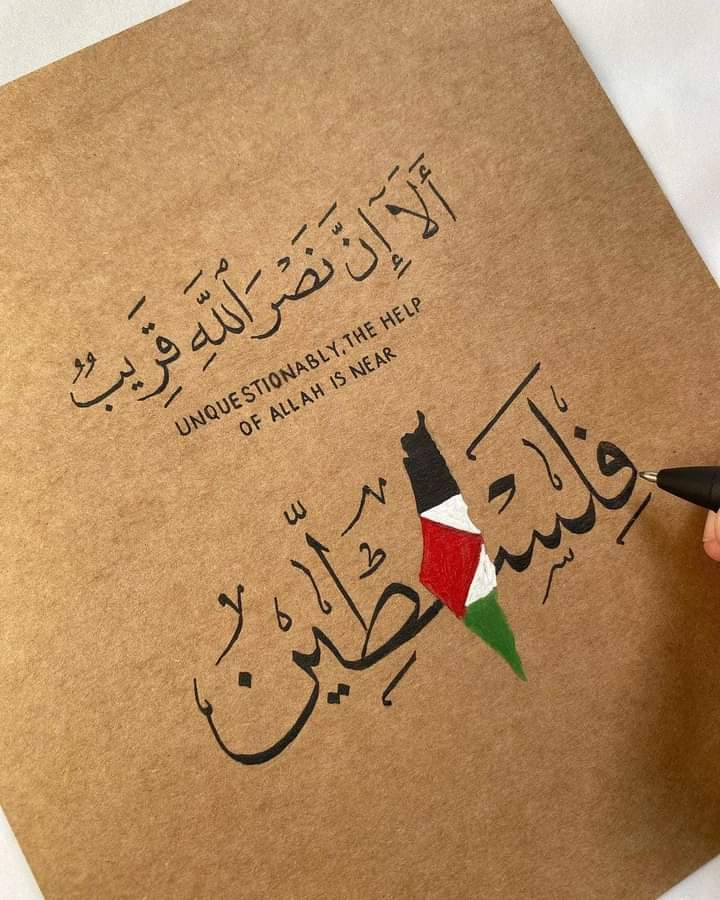 أَلَا إِنَّ نَصْرَ ٱللَّهِ قَرِيبٌ
UNQUESTIONABLY, THE HELP
OF ALLAH IS NEAR
فِلَسْطِين